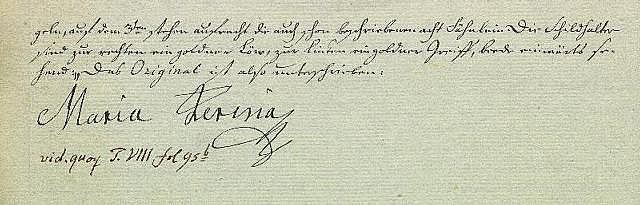 geln, aus dem 3ten stehen aufrecht die auch schon beschriebenen acht Fähnlein. Die Schildhalter
sind zur rechten ein goldner Löw, zur linken ein goldner Greiff, beede einwärts se-
hend. Das Original ist also unterschrieben:
Maria Teresia
vid. quoq T. VIII. fol 95b